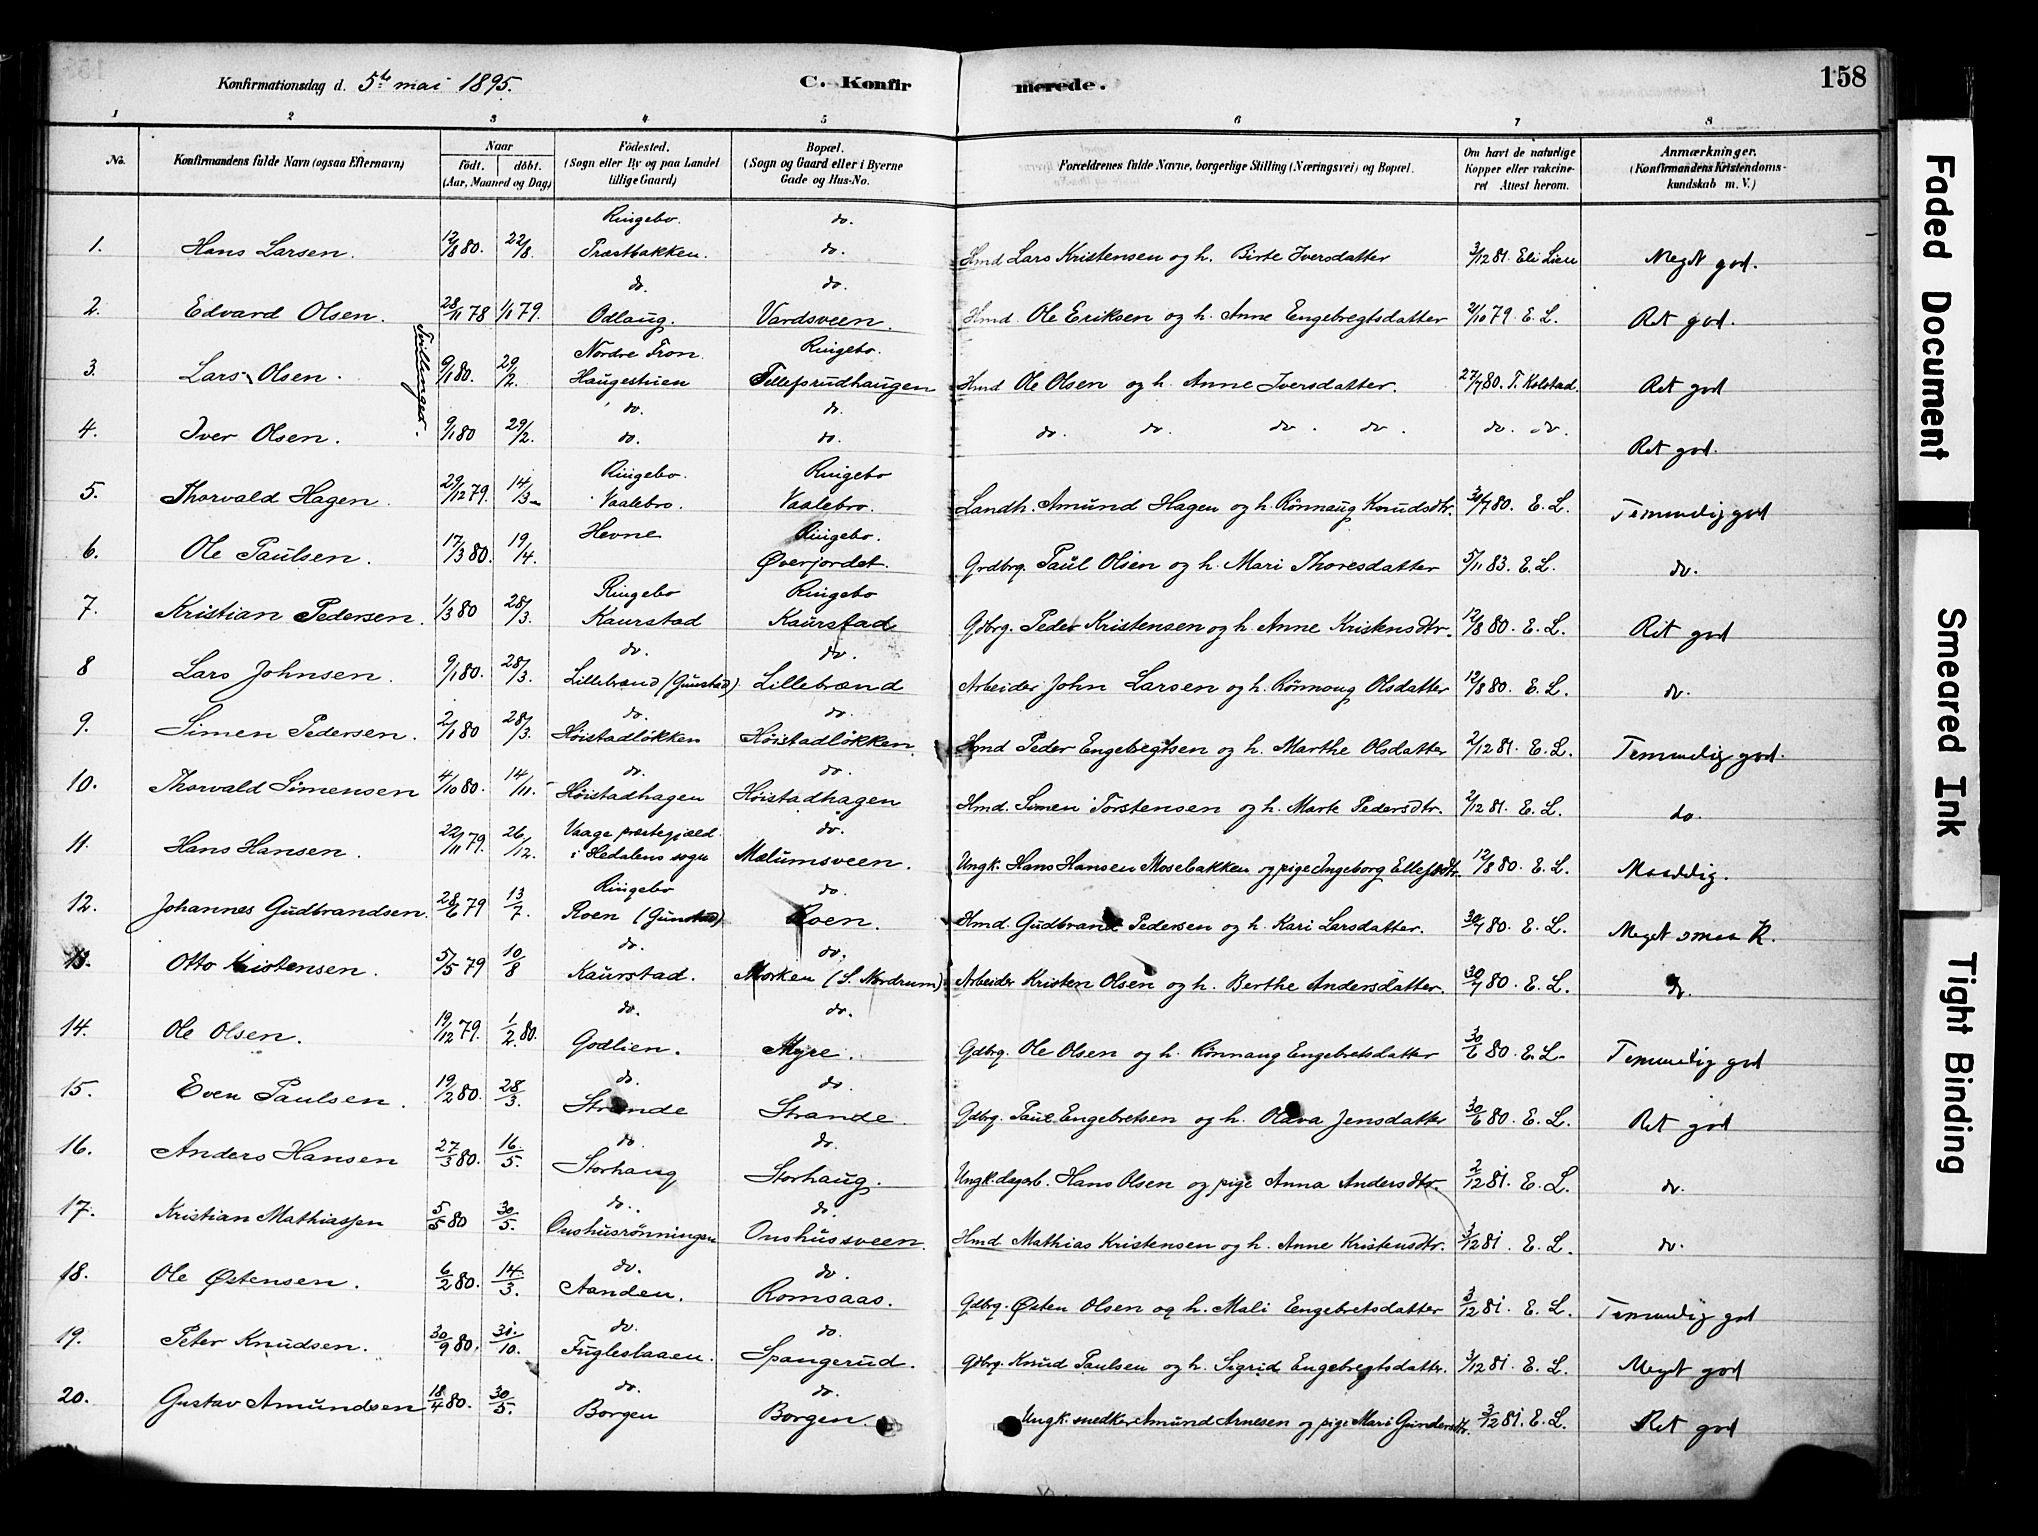 Konfirmationsdag d. 5te mai 1895.
C. Konfir merede.
158
1 2 3 4 5 6 7 8
No. Konfirmandens fulde Navn (ogsaa Efternavn) Naar födt. döbt. (Aar, Maaned og Dag) Födested. (Sogn eller By og paa Landet tillige Gaard) Bopæl. (Sogn og Gaard eller i Byerne Gade og Hus-No. Forældrenes fulde Navne, borgerlige Stilling (Næringsvei) og Bopæl. Om havt de naturlige Kopper eller vakcineret Attest herom. Anmærkninger. (Konfirmandens Kristendomskundskab m. V.)
Ringebo. do.
1. Hans Larsen. 12/8 80. 22/8. Præstbakken. do. Hmd Lars Kristensen og h. Birte Iversdatter 3/12 81. Eli Lien Meget god.
do. do.
2. Edvard Olsen. 28/11 78 1/1 79. Odlaug. Vardsveen. Hmd. Ole Eriksen og h. Anne Engebregtsdatter 2/10 79. E. L. Ret god.
Tvillinger.
Nordre Fron. Ringebo.
3. Lars Olsen. 9/1 80. 29/2. Haugestuen Tollefsrudhaugen Hmd Ole Olsen og h. Anne Iversdatter. 27/7 80. T. Kolstad. Ret god
do. do.
4. Iver Olsen. 9/1 80 29/2. do. do. do. do. do. do. do. do. Ret god.
Ringebo. Ringebo
5. Thorvald Hagen. 29/12 79. 14/3 Vaalebro. Vaalebro. Landh. Amund Hagen og h. Rönnaug Knudsdtr. 30/7 80. E. L. Temmelig god
Hevne Ringebo.
6. Ole Paulsen. 17/3 80. 19/4. Øverjordet. Grdbrg. Paul Olsen og h. Mari Thoresdatter 5/11 83. E. L. do.
Ringebo Ringebo
7. Kristian Pedersen. 1/3 80 28/3. Kaurstad Kaurstad Gdbrg. Peder Kristensen og h. Anne Kristensdtr. 12/8 80. E. L. Ret god
do. do.
8 Lars Johnsen. 9/1 80. 28/3. Lillebrænd (Gunstad) Lillebrænd Arbeider John Larsen og h. Rönnoug Olsdatter 12/8 80. E. L. do.
do. do.
9. Simen Pedersen. 2/1 80 28/3. Höistadlökken Höistadlökken. Hmd Peder Engebregtsen og h. Marthe Olsdatter 2/12 81. E. L. Temmelig god.
do. do.
10. Thorvald Simensen 4/10 80. 14/11. Höistadhagen Höistadhagen Hmd. Simen Torstensen og h. Marte Pedersdtr. 2/12 81. E. L. do.
Vaage præstegjæld do.
11. Hans Hansen. 22/11 79. 26/12. i Hedalens sogn Mælumsveen. Ungk. Hans Hansen Mosebakken og pige Ingeborg Ellefsdtr. 12/8 80. E. L. Maadelig.
Ringebo do.
12. Johannes Gudbrandsen. 28/6 79 13/7. Roen (Gunstad) Roen. Hmd. Gudbrand Pedersen og h. Kari Larsdatter. 30/7 80. E. L. Meget smaa K.
do. do.
13. Otto Kristensen. 5/5 79 10/8 Kaurstad. Morken (S. Nordrum) Arbeider Kristen Olsen og h. Berthe Andersdatter. 30/7 80. E. L. do.
do. do.
14. Ole Olsen. 19/12 79. 1/2 80. Godlien. Myre. Gdbrg. Ole Olsen og h. Rönnaug Engebretsdatter 30/6 80. E. L. Temmelig god
do. do.
15. Even Paulsen. 19/2 80. 28/3. Strande Strande. Gdbrg. Paul Engebretsen og h. Olava Jensdatter 30/6 80. E. L. Ret god
do. do.
16. Anders Hansen 27/3 80. 16/5. Storhaug Storhaug. Ungk. dagarb. Hans Olsen og pige Anna Andersdtr. 2/12 81. E. L. do.
do. do.
17. Kristian Mathiassen 5/5 80 30/5. Onshusrönningen Onshussveen. Hmd. Mathias Kristensen og h. Anne Kristensdtr. 3/12 81. E. L. do.
do. do.
18. Ole Østensen. 6/2 80. 14/3. Aanden. Romsaas. Gdbrg. Østen Olsen og h. Mali Engebretsdatter 3/12 81. E. L. Temmelig god
do. do.
19. Peter Knudsen. 30/9 80. 31/10. Fugleslaaen. Spangerud. Gdbrg. Knud Paulsen og h. Sigrid Engebregtsdatter. 3/12 81 E. L. Meget god
do. do.
20. Gustav Amundsen 18/4 80. 30/5. Borgen Borgen. Ungk. snedker Amund Arnesen og pige Mari Gundersdtr. 3/12 81. E. L. Ret god
Faded Document
Smeared Ink
Tight Binding